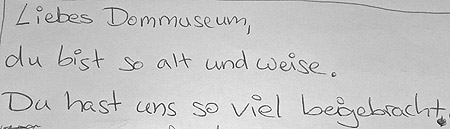 Liebes Dommuseum,
du bist so alt und weise.
Du hast uns so viel beigebracht.